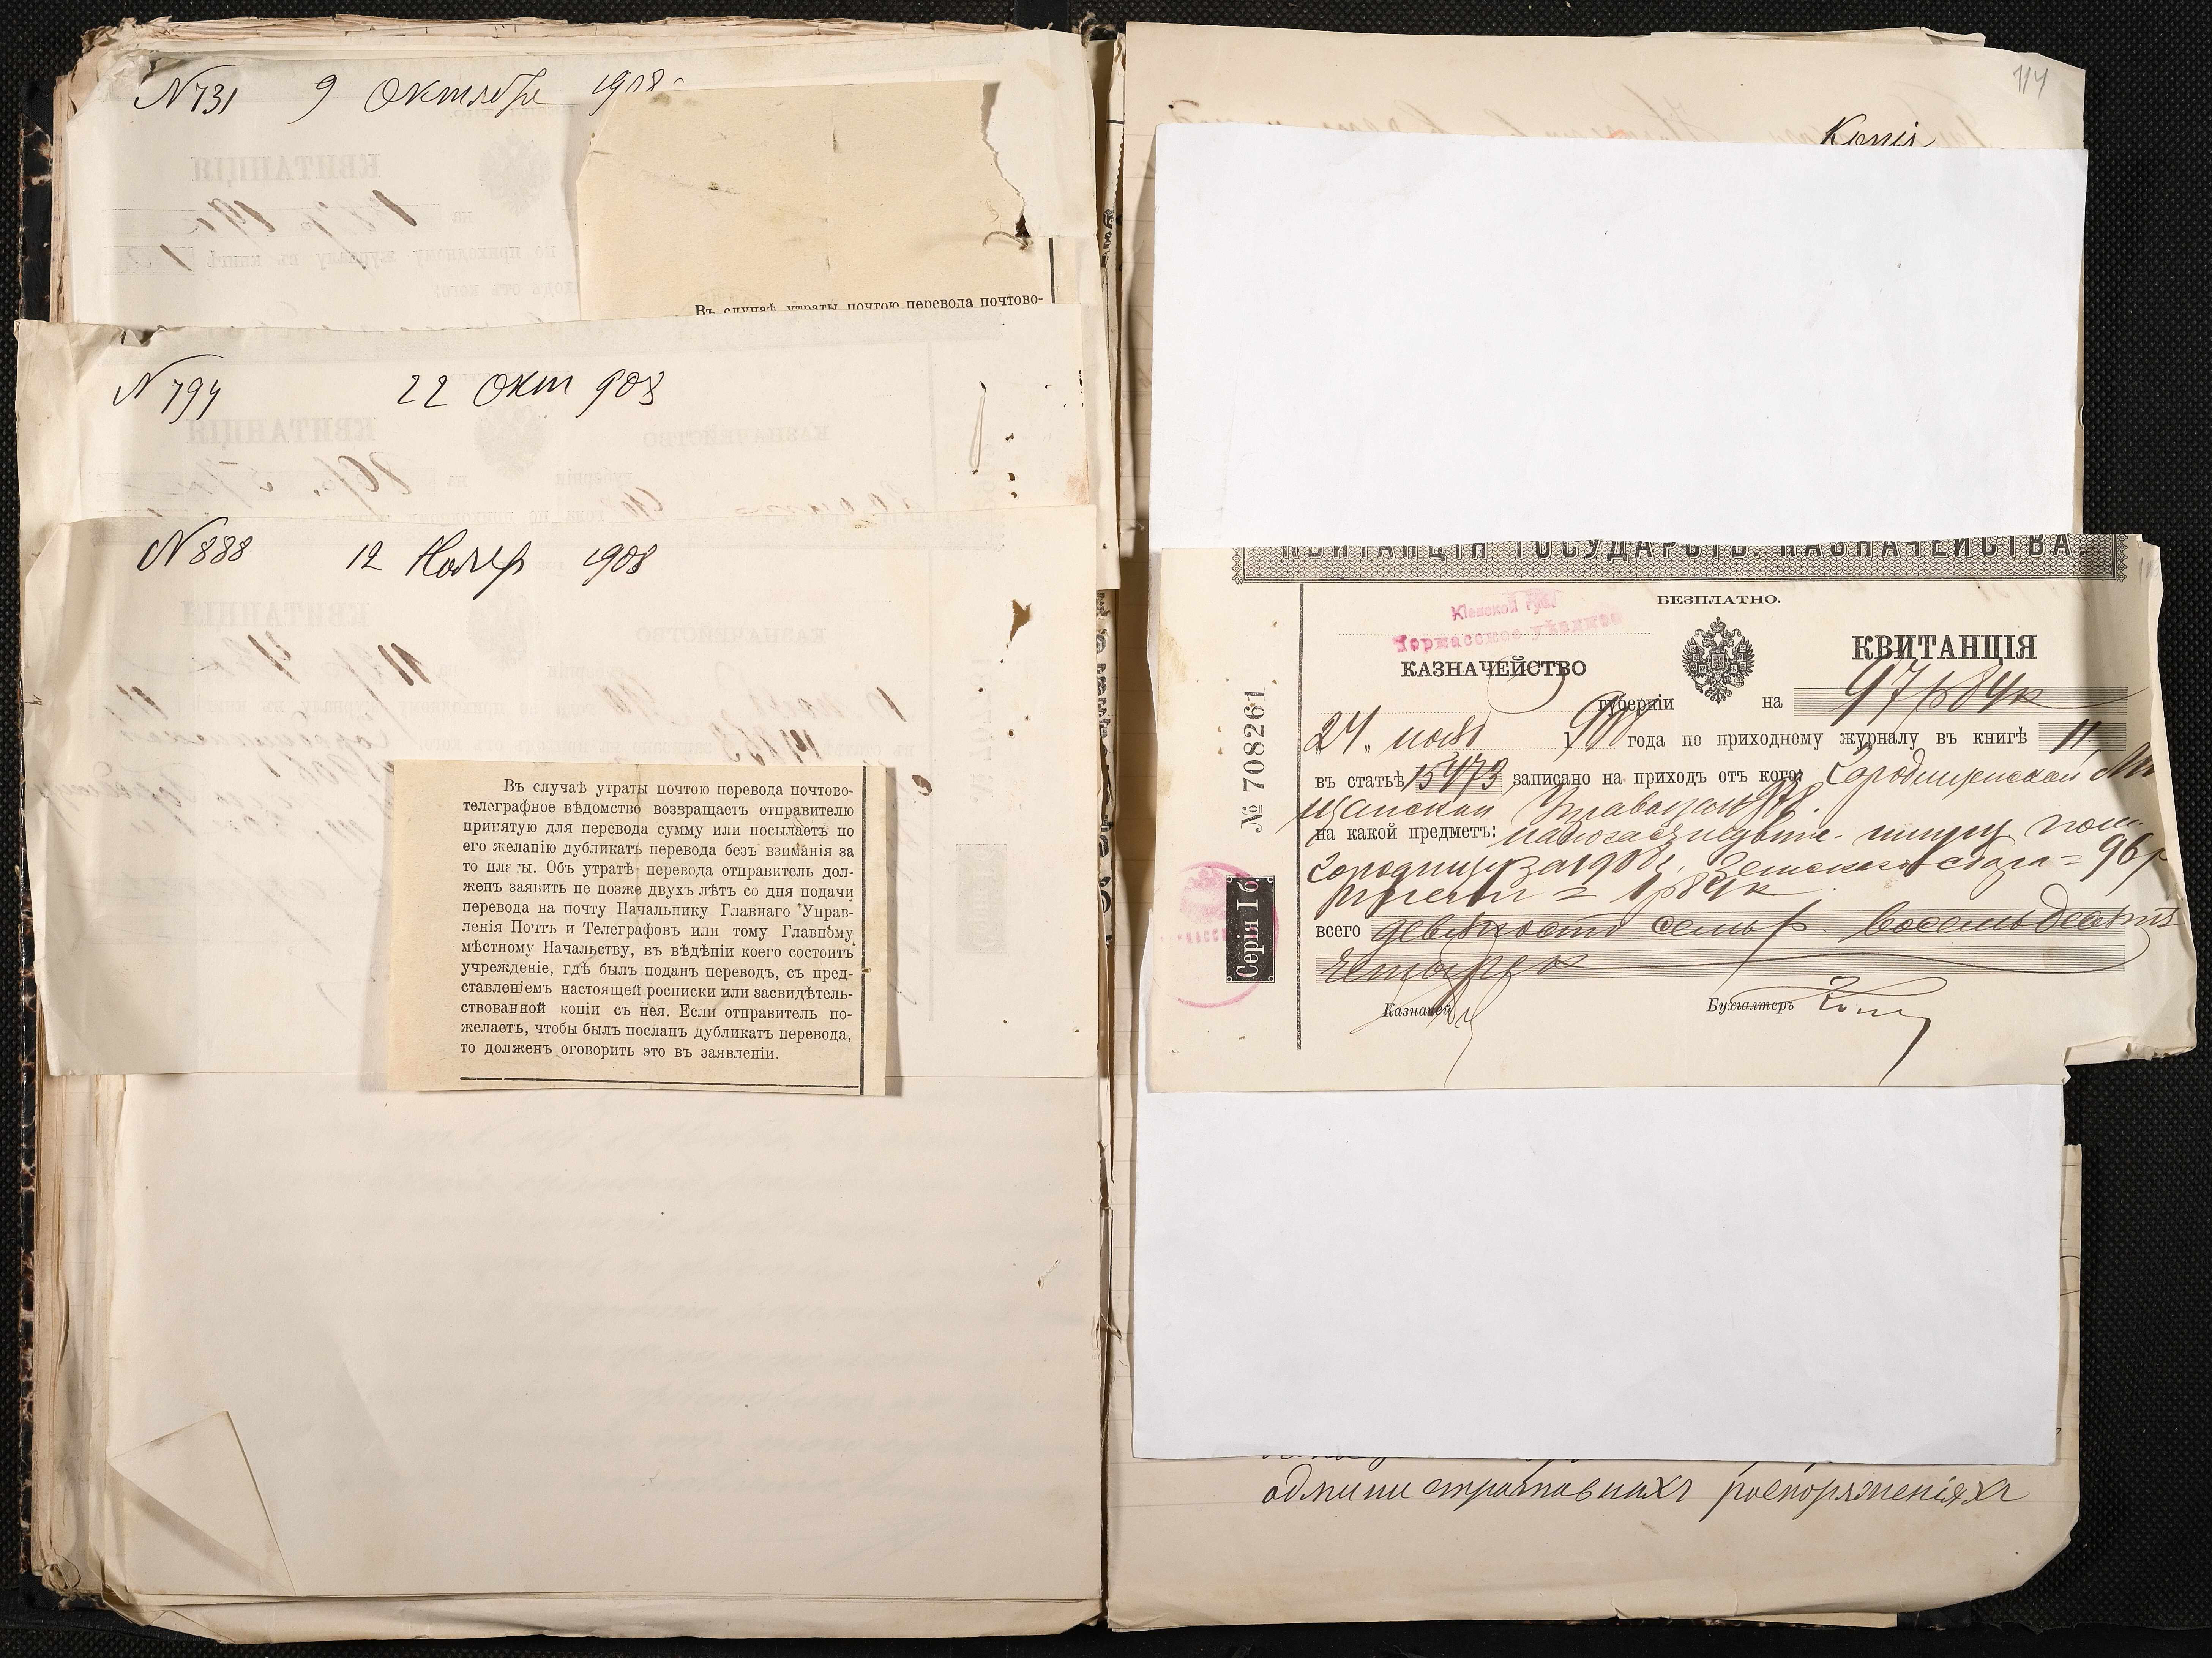 N 731 9 Октября 1908
Въ случаѣ утраты почтою перевода почтово-
N 794 22 Окт 908
N 888 12 Ноябр 1908
Въ случаѣ утраты почтою перевода почтово-
телеграфное вѣдомство возвращаетъ отправителю
принятую для перевода сумму или посылаетъ по
его желанію дубликатъ перевода безъ взиманія за
то платы. Объ утратѣ перевода отправитель дол-
женъ заявить не позже двухъ лѣтъ со дня подачи
перевода на почту Начальнику Главнаго Управ-
ленія Почтъ и Телеграфовъ или тому Главному
мѣстному Начальству, въ вѣдѣніи коего состоитъ
учрежденіе, гдѣ былъ поданъ переводъ, съ пред-
ставленіемъ настоящей росписки или засвидѣтель-
ствованной копіи съ нея. Если отправитель по-
желаетъ, чтобы былъ посланъ дубликатъ перевода,
то долженъ оговорить это въ заявленіи.
114
Копія
КВИТАНЦІЯ ГОСУДАРСТВ. КАЗНАЧЕЙСТВА.
БЕЗПЛАТНО.
Кіевской губ.
Черкасское уѣздное
КАЗНАЧЕЙСТВО
КВИТАНЦІЯ
губерніи на 97 р 84 к
24 нояб 1908 года по приходному журналу въ книгѣ 11
въ статьѣ 15473 записано на приходъ отъ кого: Городищенской Мѣ
щанской Управы
на какой предметъ: налога съ недвиж. имущ.
Городище за 1908 г. Земскаго сбора = 96 р
1 р 84 к
всего девяносто семь р. восемьдесятъ
четыре к
Казначей
Бухгалтеръ
№ 708261
Серія I б.
административныхъ распоряженіяхъ